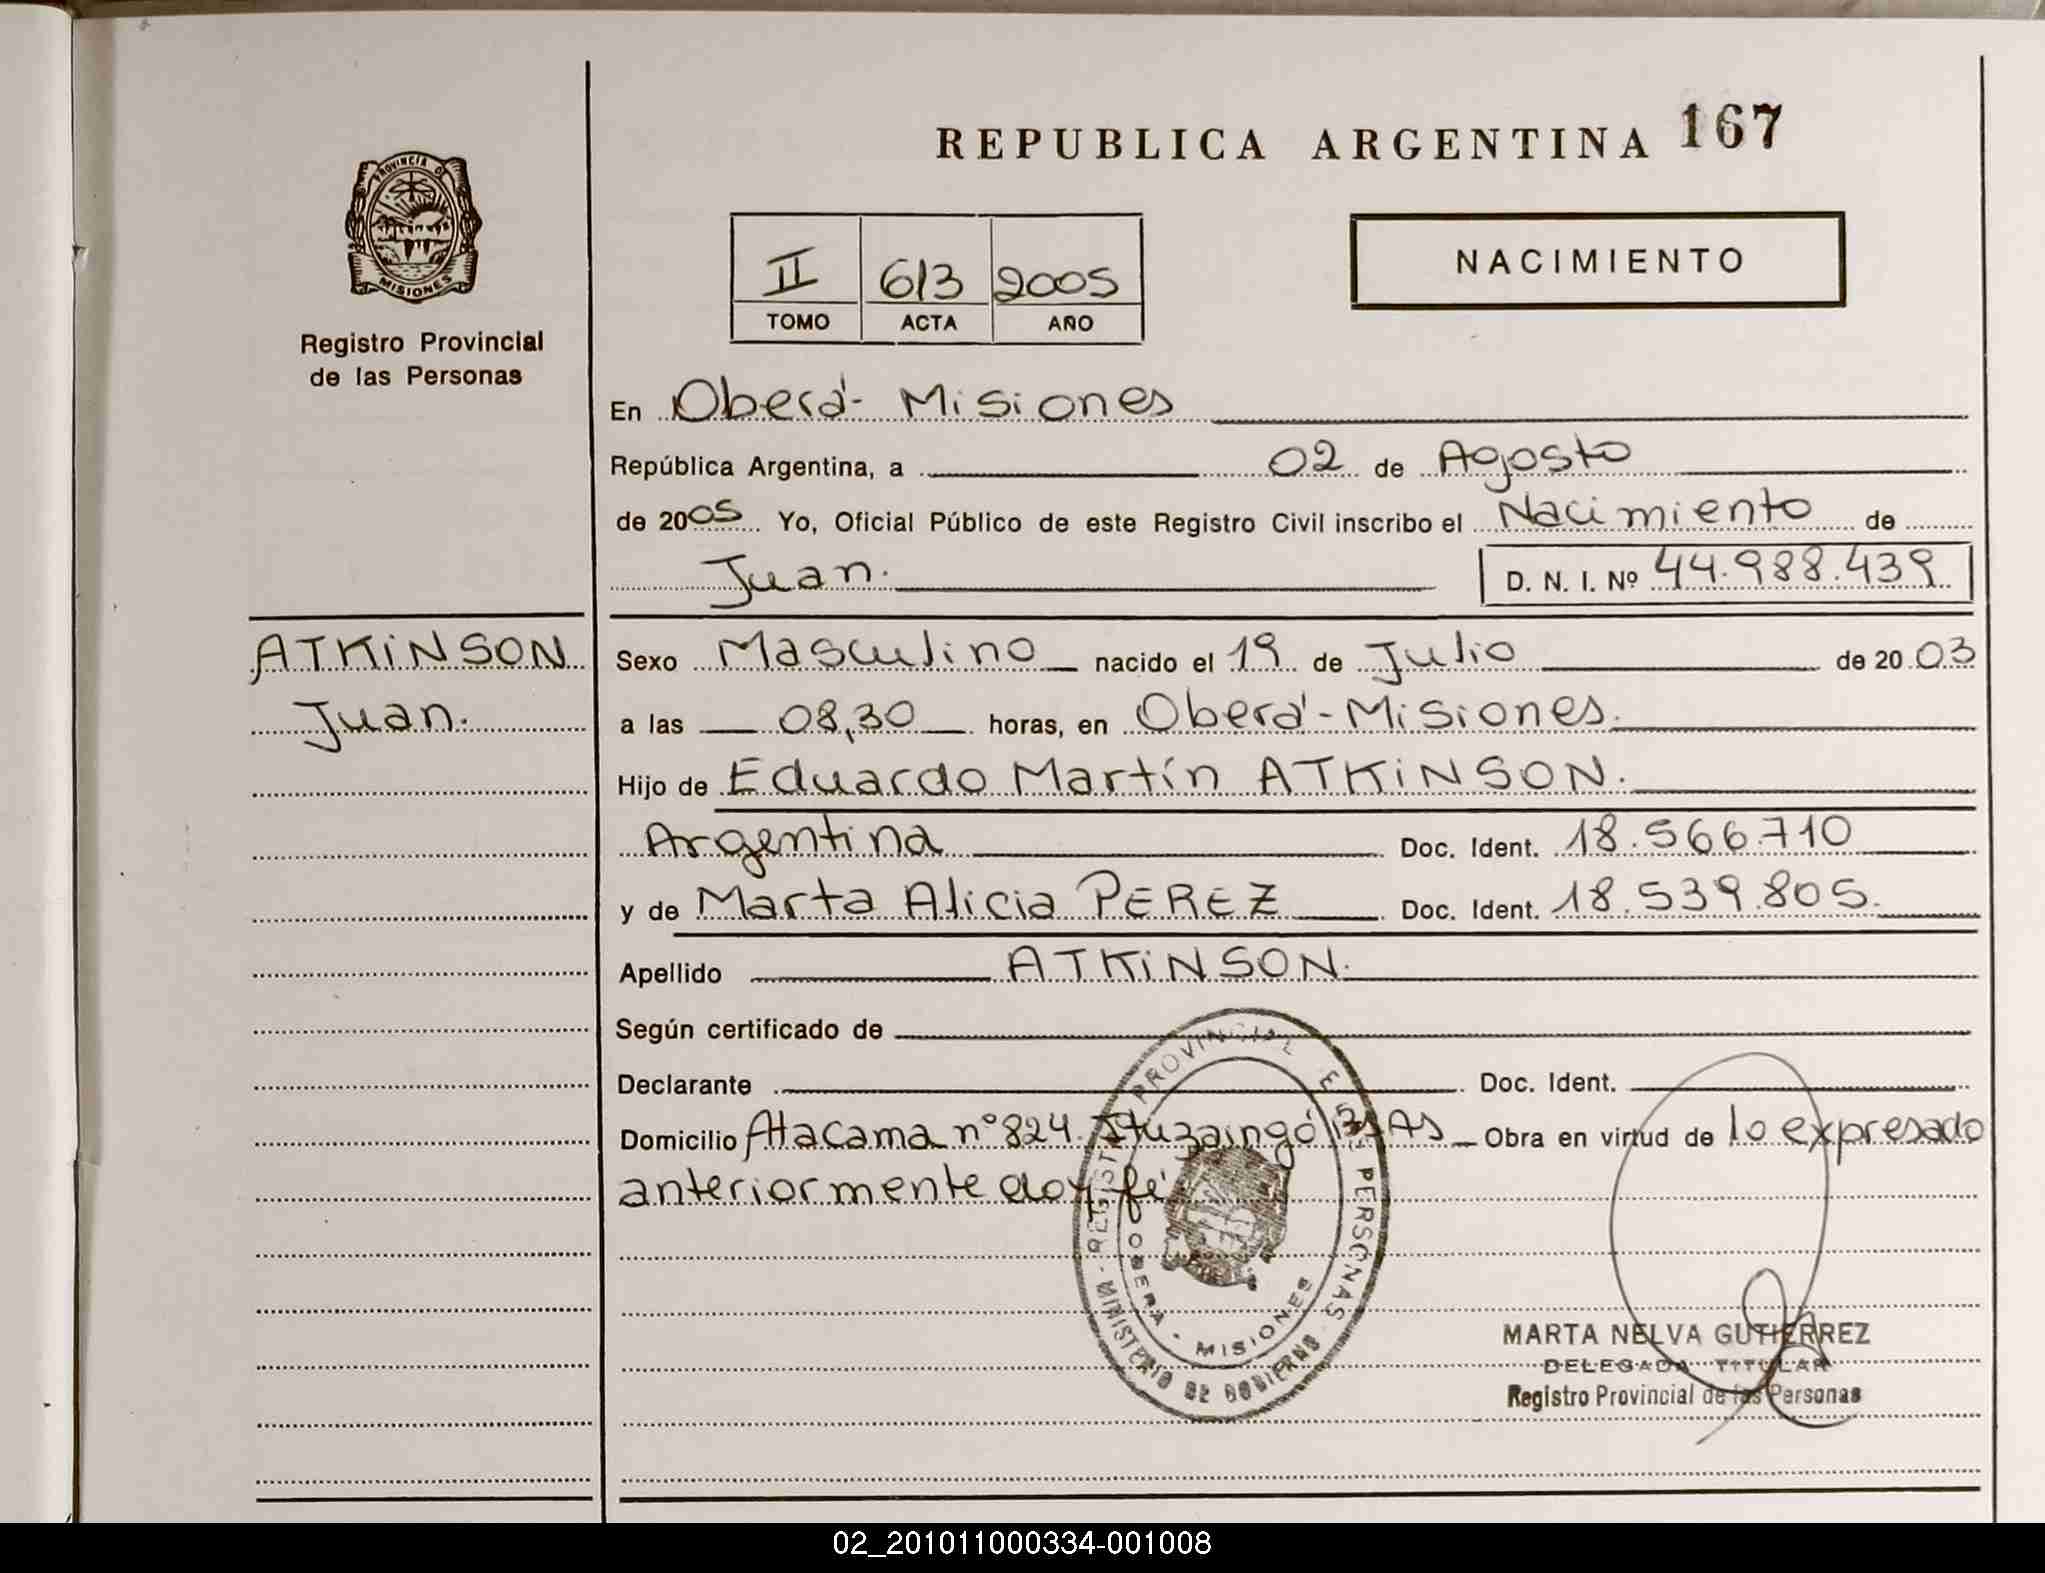 PROVINCIA DE
MISIONES
Registro Provincial
de las Personas
REPUBLICA ARGENTINA 167
II 613 2005
TOMO ACTA AÑO
NACIMIENTO
En Oberá - Misiones
República Argentina, a 02 de Agosto
de 2005 Yo, Oficial Público de este Registro Civil inscribo el Nacimiento de
Juan. D. N. I. Nº 44.988.439
ATKiNSON
Juan.
Sexo Masculino nacido el 19 de Julio de 2003
a las 08,30 horas, en Oberá - Misiones.
Hijo de Eduardo Martín ATKiNSON.
Argentina Doc. Ident. 18.566.710
y de Marta Alicia PEREZ Doc. Ident. 18.539.805.
Apellido ATKiNSON.
Según certificado de
Declarante Doc. Ident.
Domicilio Atacama nº 824 Ituzaingó Bs As Obra en virtud de lo expresado
anteriormente doy fé
REGISTRO PROVINCIAL DE LAS PERSONAS
MINISTERIO DE GOBIERNO
OBERÁ - MISIONES
MARTA NELVA GUTIERREZ
DELEGADA TITULAR
Registro Provincial de las Personas
02_201011000334-001008